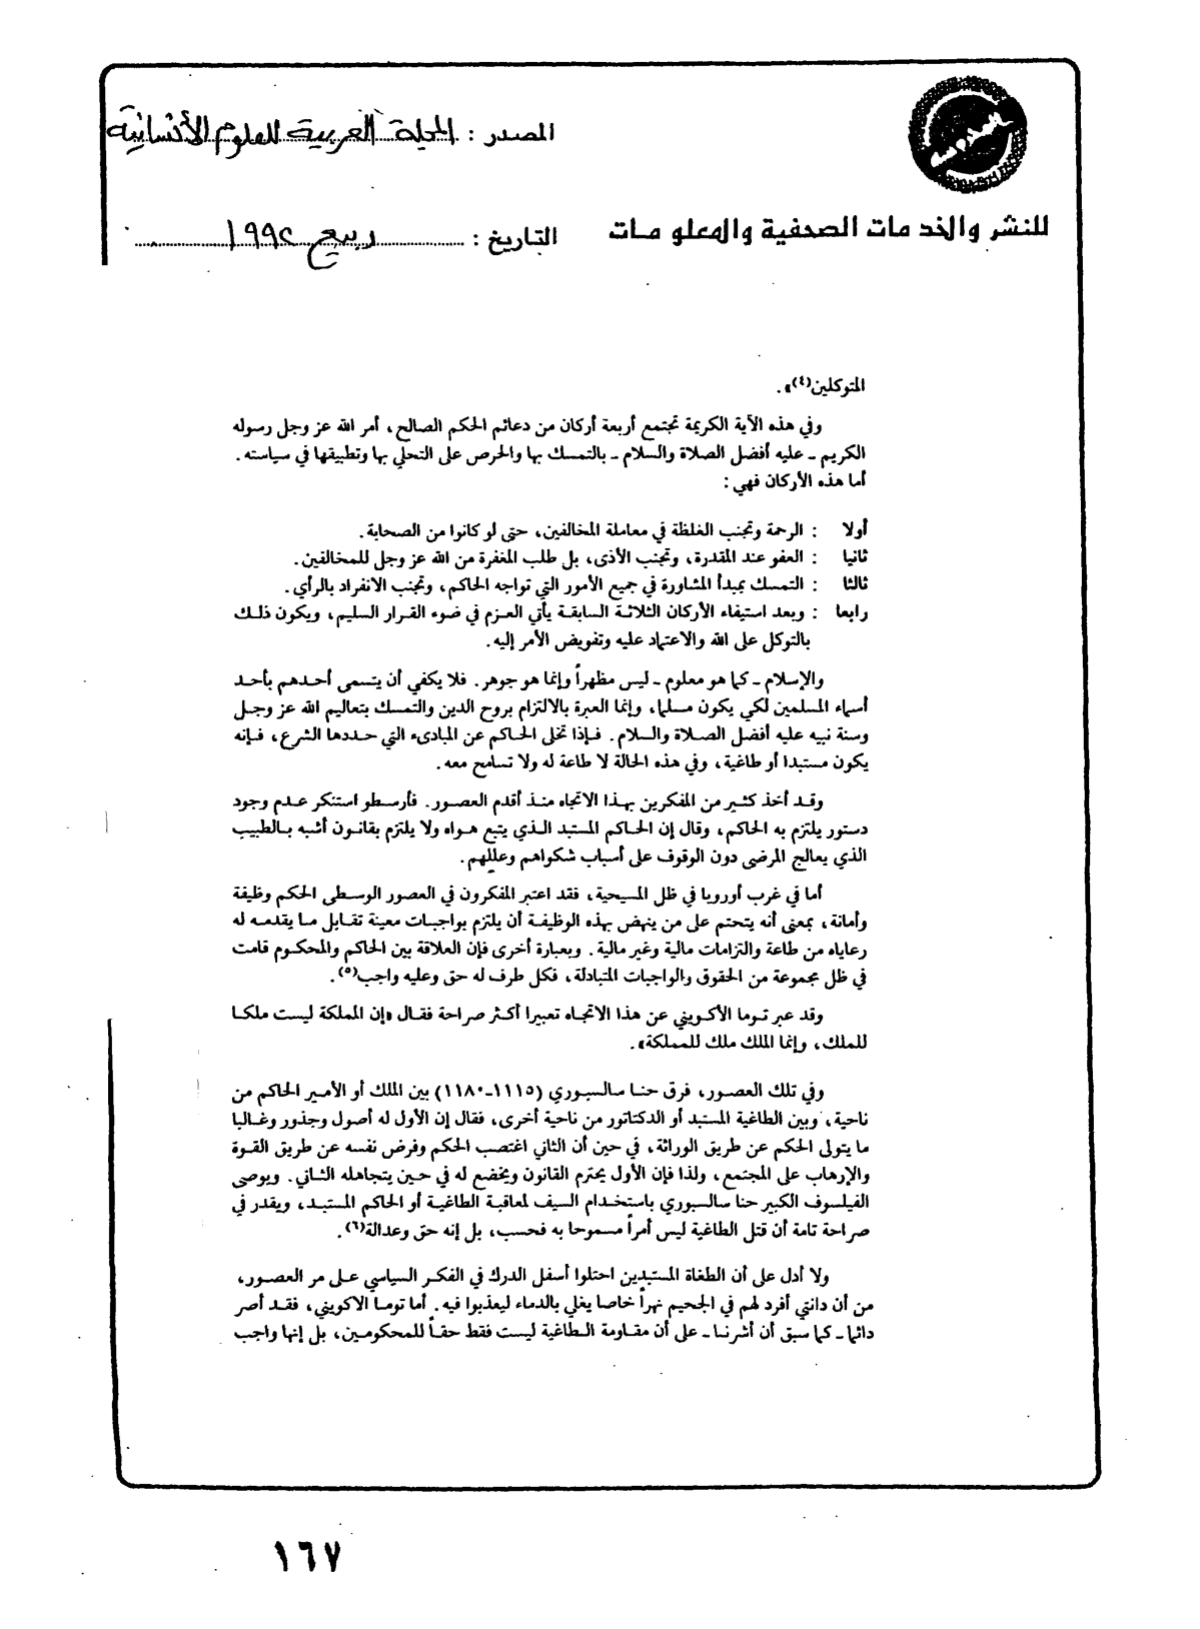 المصدر : المجلة العربية للعلوم الأنسانية
للنشر والخدمات الصحفية والمعلومات
التاريخ : ربيع ١٩٩٢
المتوكلين(٤)» .
وفي هذه الآية الكريمة تجتمع أربعة أركان من دعائم الحكم الصالح، أمر الله عز وجل رسوله
الكريم ـ عليه أفضل الصلاة والسلام ـ بالتمسك بها والحرص على التحلي بها وتطبيقها في سياسته .
أما هذه الأركان فهي :
أولا : الرحمة وتجنب الغلظة في معاملة المخالفين، حتى لو كانوا من الصحابة .
ثانيا : العفو عند المقدرة، وتجنب الأذى، بل طلب المغفرة من الله عز وجل للمخالفين .
ثالثا : التمسك بمبدأ المشاورة في جميع الأمور التي تواجه الحاكم، وتجنب الانفراد بالرأي .
رابعا : وبعد استيفاء الأركان الثلاثة السابقة يأتي العزم في ضوء القرار السليم، ويكون ذلك
بالتوكل على الله والاعتماد عليه وتفويض الأمر إليه .
والإسلام ـ كما هو معلوم ـ ليس مظهراً وإنما هو جوهر . فلا يكفي أن يتسمى أحدهم بأحد
أسماء المسلمين لكي يكون مسلما، وإنما العبرة بالالتزام بروح الدين والتمسك بتعاليم الله عز وجل
وسنة نبيه عليه أفضل الصلاة والسلام . فإذا تخلى الحاكم عن المبادىء التي حددها الشرع، فإنه
يكون مستبدا أو طاغية، وفي هذه الحالة لا طاعة له ولا تسامح معه .
وقد أخذ كثير من المفكرين بهذا الاتجاه منذ أقدم العصور . فأرسطو استنكر عدم وجود
دستور يلتزم به الحاكم، وقال إن الحاكم المستبد الذي يتبع هواه ولا يلتزم بقانون أشبه بالطبيب
الذي يعالج المرضى دون الوقوف على أسباب شكواهم وعللهم .
أما في غرب أوروبا في ظل المسيحية، فقد اعتبر المفكرون في العصور الوسطى الحكم وظيفة
وأمانة، بمعنى أنه يتحتم على من ينهض بهذه الوظيفة أن يلتزم بواجبات معينة تقابل ما يقدمه له
رعاياه من طاعة والتزامات مالية وغير مالية . وبعبارة أخرى فإن العلاقة بين الحاكم والمحكوم قامت
في ظل مجموعة من الحقوق والواجبات المتبادلة، فكل طرف له حق وعليه واجب(٥) .
وقد عبر توما الأكويني عن هذا الاتجاه تعبيرا أكثر صراحة فقال «إن المملكة ليست ملكا
للملك، وإنما الملك ملك للمملكة» .
وفي تلك العصور، فرق حنا سالسبوري (١١١٥ـ١١٨٠) بين الملك أو الأمير الحاكم من
ناحية، وبين الطاغية المستبد أو الدكتاتور من ناحية أخرى، فقال إن الأول له أصول وجذور وغالبا
ما يتولى الحكم عن طريق الوراثة، في حين أن الثاني اغتصب الحكم وفرض نفسه عن طريق القوة
والإرهاب على المجتمع، ولذا فإن الأول يحترم القانون ويخضع له في حين يتجاهله الثاني . ويوصى
الفيلسوف الكبير حنا سالسبوري باستخدام السيف لمعاقبة الطاغية أو الحاكم المستبد، ويقدر في
صراحة تامة أن قتل الطاغية ليس أمراً مسموحا به فحسب، بل إنه حق وعدالة(٦) .
ولا أدل على أن الطغاة المستبدين احتلوا أسفل الدرك في الفكر السياسي على مر العصور،
من أن دانتي أفرد لهم في الجحيم نهراً خاصا يغلي بالدماء ليعذبوا فيه . أما توما الاكويني، فقد أصر
دائما ـ كما سبق أن أشرنا ـ على أن مقاومة الطاغية ليست فقط حقاً للمحكومين، بل إنها واجب
١٦٧